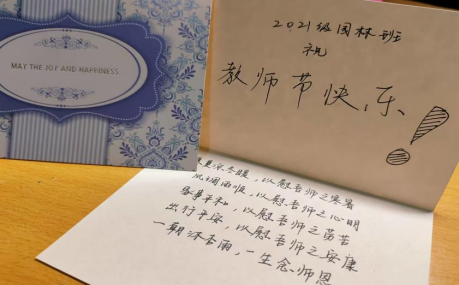 MAY THE JOY AND HAPPINESS
2021级园林班
祝
教师节快乐!
夏凉冬暖,以慰吾师之寒暑
风调雨顺,以慰吾师之心明
诸事平和,以慰吾师之劳苦
出行平安,以慰吾师之安康
一朝沐杏雨,一生念师恩